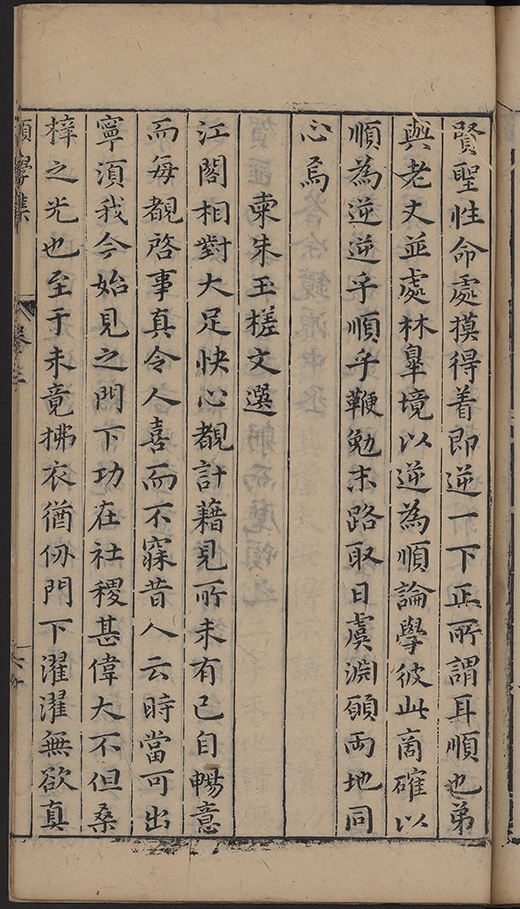 賢聖性命處摸得着即逆一下正所謂耳順也弟
與老丈並處林臯境以逆為順論學彼此商確以
順為逆逆乎順乎鞭勉末路取日虞淵願兩地同
心焉
柬朱玉槎文選
江閣相對大足快心覩計藉見所未有已自暢意
而每覩啓事真令人喜而不寐昔人云時當可出
寧須我今始見之門下功在社稷甚偉大不但桑
梓之光也至于未竟拂衣猶仍門下濯濯無欲真
學集